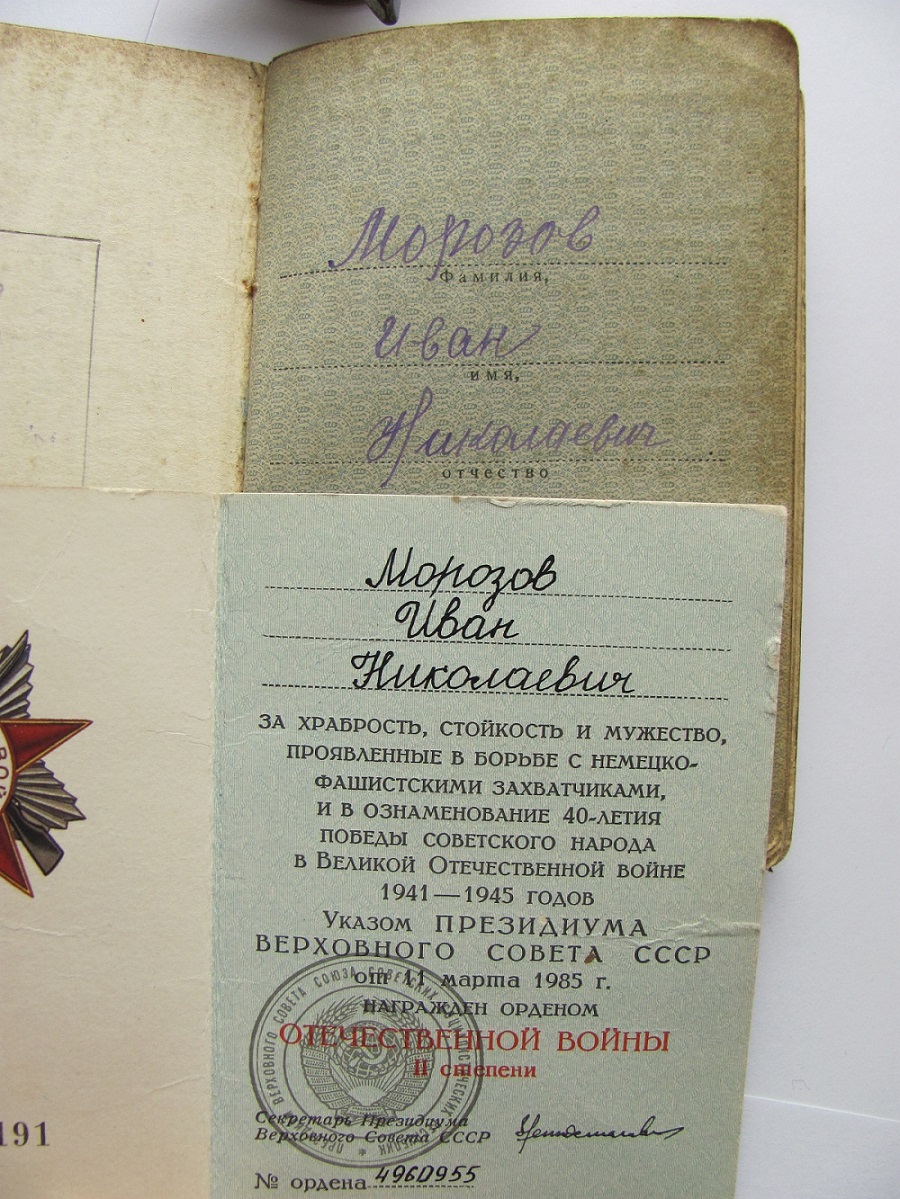 Морозов
Фамилия,
Иван
имя,
Николаевич
отчество
Морозов
Иван
Николаевич
ЗА ХРАБРОСТЬ, СТОЙКОСТЬ И МУЖЕСТВО,
ПРОЯВЛЕННЫЕ В БОРЬБЕ С НЕМЕЦКО-
ФАШИСТСКИМИ ЗАХВАТЧИКАМИ,
И В ОЗНАМЕНОВАНИЕ 40-ЛЕТИЯ
ПОБЕДЫ СОВЕТСКОГО НАРОДА
В ВЕЛИКОЙ ОТЕЧЕСТВЕННОЙ ВОЙНЕ
1941—1945 ГОДОВ
УКАЗОМ ПРЕЗИДИУМА
ВЕРХОВНОГО СОВЕТА СССР
от 11 марта 1985 г.
НАГРАЖДЕН ОРДЕНОМ
ОТЕЧЕСТВЕННОЙ ВОЙНЫ
II степени
Секретарь Президиума
Верховного Совета СССР
№ ордена 4960955
ВОЙ
191